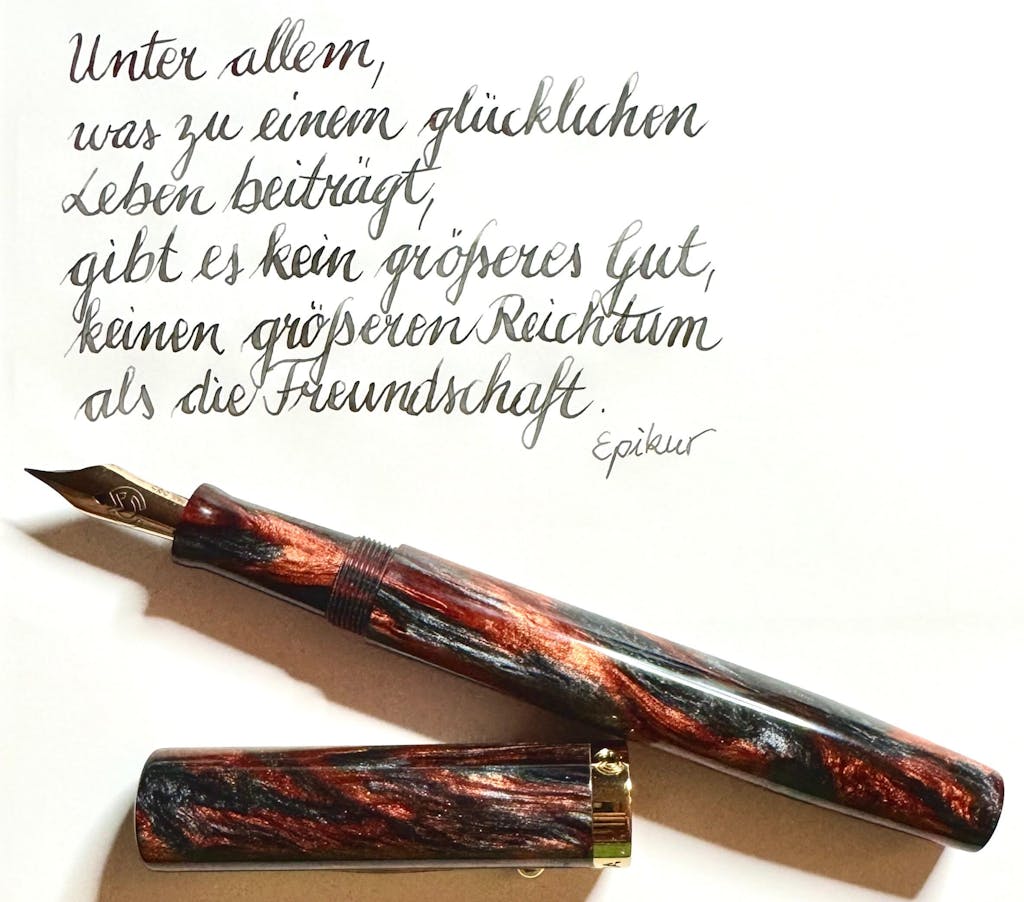 Unter allem,
was zu einem glücklichen
Leben beiträgt,
gibt es kein größeres Gut,
keinen größeren Reichtum
als die Freundschaft.
Epikur